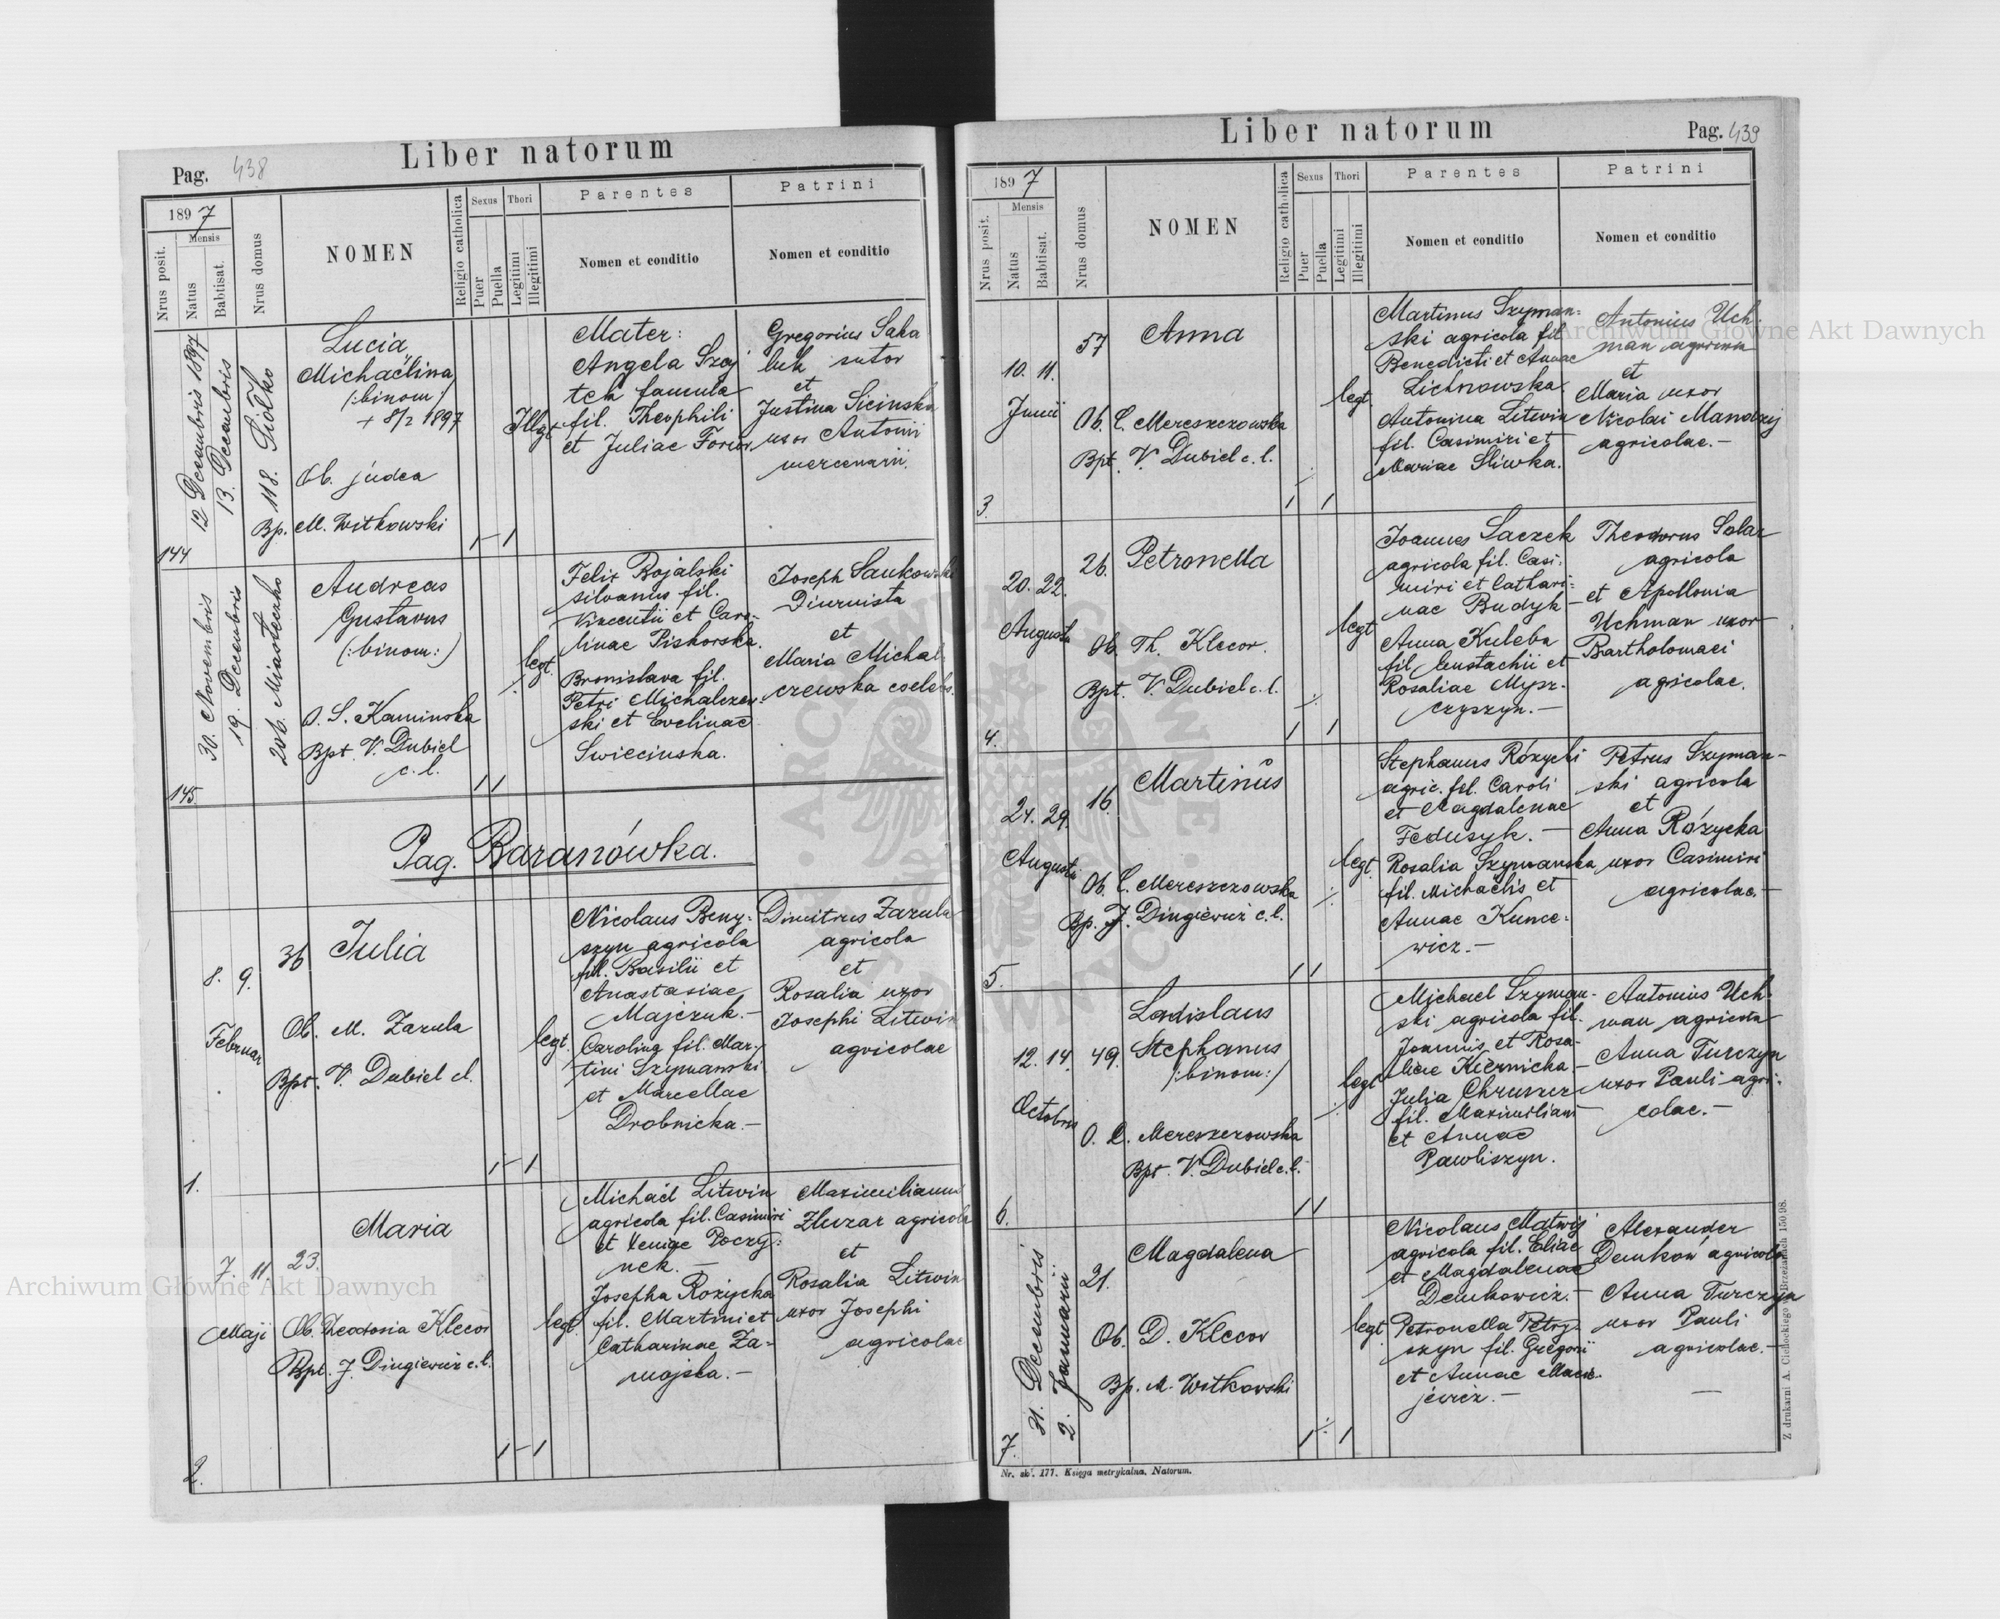 Pag. 438
Liber natorum
1897
Mensis
Nrus posit.
Natus
Babtisat.
Nrus domus
NOMEN
Religio catholica
Sexus
Puer
Puella
Thori
Legitimi
Illegitimi
Parentes
Nomen et conditio
Patrini
Nomen et conditio
144
12 Decembris 1897
13. Decembris
118.
Lucia
Michaëlina
(:binom:)
Ob. judea
Bp. M. Witkowski
Illgt
Mater:
Angela Szaj
tek famula
fil. Theophili
et Juliae
Gregorius Saha
luk sutor
et
Justina Sicinska
uxor Antonii
mercenarii.
145
30. Novembris
19. Decembris
206. Miasteczko
Andreas
Gustavus
(:binom:)
O. S. Kaminska
Bpt. V. Dubiel
c. l.
legt.
Felix Rojalski
silvanus fil.
Vincentii et Caro-
linae Piskorska.
Bronislava fil.
Petri Michalczew-
ski et Evelinae
Swiecinska.
Joseph Sankowski
Diurnista
et
Maria Michal-
czewska coelebs.
Pag. Baranówka.
1.
8. 9.
Februar
36
Julia
Ob. M. Zazula
Bpt. V. Dubiel cl.
legt.
Nicolaus Beny-
szyn agricola
fil. Basilii et
Anastasiae
Majczuk.—
Carolina fil. Mar-
tini Szymanski
et Marcellae
Drobnicka.—
Dimitrus Zazula
agricola
et
Rosalia uxor
Josephi Litwin
agricolae
2.
7. 11
Maji
23.
Maria
Ob. Theodosia Klecor
Bpt. J. Dingiewicz c. l.
legt.
Michaël Litwin
agricola fil. Casimiri
et Xeniae Poczy-
nek.—
Josepha Rozycka
fil. Martini et
Catharinae Za-
mojska.—
Maximilianus
Zluzar agricola
et
Rosalia Litwin
uxor Josephi
agricolae
Liber natorum
Pag. 439
1897
Mensis
Nrus posit.
Natus
Babtisat.
Nrus domus
NOMEN
Religio catholica
Sexus
Puer
Puella
Thori
Legitimi
Illegitimi
Parentes
Nomen et conditio
Patrini
Nomen et conditio
3.
10. 11.
Junii
57
Anna
Ob. C. Mereszczowska
Bpt. V. Dubiel c. l.
legt.
Martinus Szyman-
ski agricola fil
Benedicti et Annae
Lichnowska.
Antonina Litwin
fil. Casimiri et
Mariae Sliwka.
Antonius Uch-
man agricola
et
Maria uxor
Nicolai Mandzij
agricolae.—
4.
20. 22.
Augusti
26.
Petronella
Ob. Th. Klecor.
Bpt. V. Dubiel c. l.
legt
Joannes Saczek
agricola fil. Casi-
miri et Cathari-
nae Budyk—
Anna Kuleba
fil. Eustachii et
Rosaliae Mysz-
czyszyn.—
Theodorus Salaz
agricola
et Apollonia
Uchman uxor
Bartholomaei
agricolae.
5.
24. 29.
Augusti
16.
Martinus
Ob. C. Mereszczowska
Bp. J. Dingiewicz c. l.
legt.
Stephanus Rózycki
agric. fil. Caroli
et Magdalenae
Fedusyk.—
Rosalia Szymanska
fil. Michaëlis et
Annae Kunce-
wicz.—
Petrus Szyman-
ski agricola
et
Anna Rózycka
uxor Casimiri
agricolae.—
6.
12. 14.
Octobris
49.
Ladislaus
Stephanus
(:binom:)
O. C. Mereszczowska
Bpt. V. Dubiel c. l.
legt
Michael Szyman-
ski agricola fil.
Joannis et Rosa-
liae Kiernicka.—
Julia Chruszcz
fil. Maximiliani
et Annae
Pawliszyn.
Antonius Uch-
man agricola
Anna Turczyn
uxor Pauli agri-
colae.—
7.
31. Decembris
2. Januarii
21.
Magdalena
Ob. D. Klecor
Bp. M. Witkowski
legt
Nicolaus Matwij
agricola fil. Eliae
et Magdalenae
Demkowicz.—
Petronella Petry-
szyn fil. Gregorii
et Annae Macie-
jewicz.—
Alexander
Demkow agricola
Anna Turczyn
uxor Pauli
agricolae.—
Nr. skł. 177. Księga metrykalna. Natorum.
Z drukarni A. Cichockiego w Brzeżanach 150 98.
Archiwum Główne Akt Dawnych
Archiwum Główne Akt Dawnych